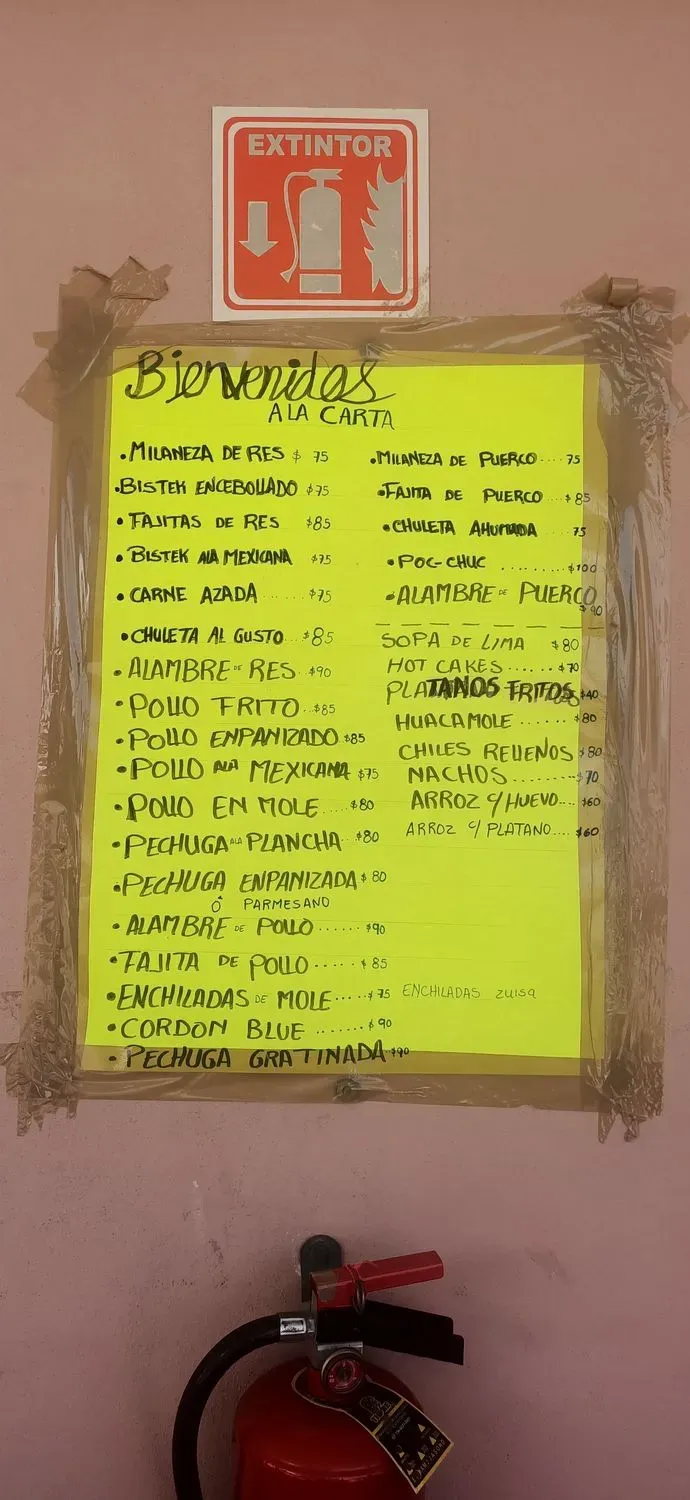 EXTINTOR
Bienvenidos
A LA CARTA
• MILANEZA DE RES $ 75
• BISTEK ENCEBOLLADO $75
• FAJITAS DE RES $85
• BISTEK ALA MEXICANA $75
• CARNE AZADA ...... $75
• CHULETA AL GUSTO ... $85
• ALAMBRE DE RES ... $90
• POLLO FRITO .. $85
• POLLO ENPANIZADO $85
• POLLO ALA MEXICANA $75
• POLLO EN MOLE .... $80
• PECHUGA ALA PLANCHA $80
• PECHUGA ENPANIZADA $80
Ó PARMESANO
• ALAMBRE DE POLLO ...... $90
• FAJITA DE POLLO ..... $85
• ENCHILADAS DE MOLE ..... $75
• CORDON BLUE ....... $90
• PECHUGA GRATINADA $90
• MILANEZA DE PUERCO .... 75
• FAJITA DE PUERCO $85
• CHULETA AHUMADA 75
• POC-CHUC ......... $100
• ALAMBRE DE PUERCO $90
SOPA DE LIMA $80
HOT CAKES ...... $70
PLATANOS FRITOS $40
HUACAMOLE ...... $80
CHILES RELLENOS $80
NACHOS ........ $70
ARROZ C/ HUEVO ... $60
ARROZ C/ PLATANO .... $60
ENCHILADAS ZUISA